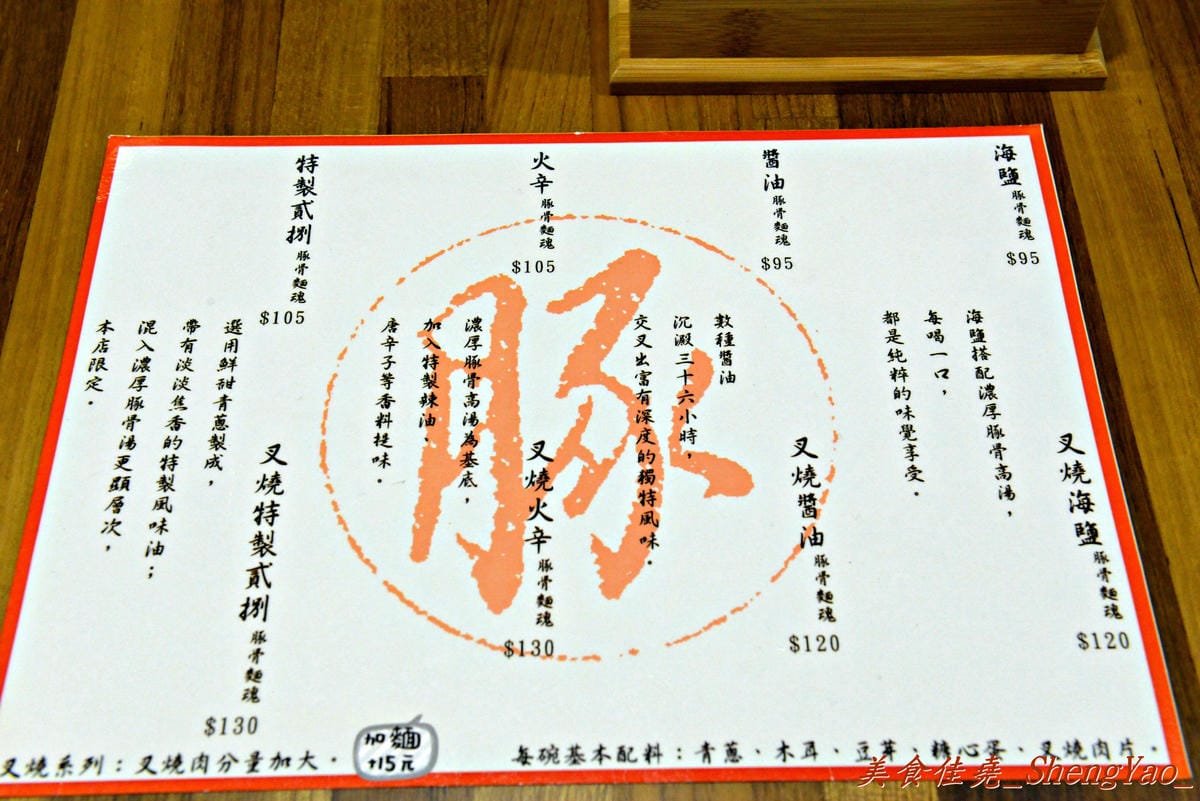 海鹽豚骨麵魂
$95
海鹽搭配濃厚豚骨高湯，
每喝一口，
都是純粹的味覺享受。
叉燒海鹽豚骨麵魂
$120
醬油豚骨麵魂
$95
數種醬油
沉澱三十六小時，
交叉出富有深度的獨特風味。
叉燒醬油豚骨麵魂
$120
火辛豚骨麵魂
$105
濃厚豚骨高湯為基底，
加入特製辣油、
唐辛子等香料提味。
叉燒火辛豚骨麵魂
$130
特製貳捌豚骨麵魂
$105
選用鮮甜青蔥製成，
帶有淡淡焦香的特製風味油；
混入濃厚豚骨湯更顯層次，
本店限定。
叉燒特製貳捌豚骨麵魂
$130
豚
叉燒系列：叉燒肉分量加大。
加麵
+15元
每碗基本配料：青蔥、木耳、豆芽、糖心蛋、叉燒肉片。
美食佳堯_ShengYao_